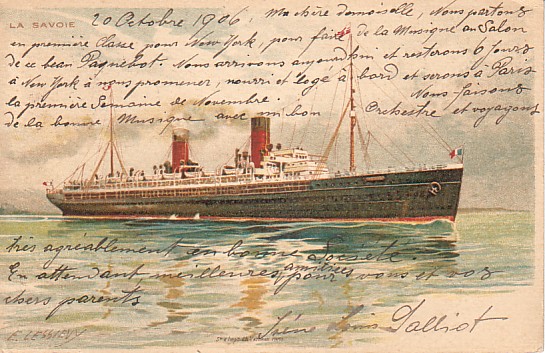 LA SAVOIE
20 Octobre 1906, Ma chère demoiselle, Nous partons
en première Classe pour New York, pour faire de la Musique au Salon
de ce beau Paquebot. Nous arrivons aujourd'hui et resterons 6 jours
à New York à nous promener, nourri et logé à bord et serons à Paris
la première Semaine de Novembre. Nous faisons
de la bonne Musique avec un bon Orchestre et voyageons
très agréablement en bonne Société.
En attendant meilleures années pour vous et vos
chers parents
Louis Dalliot